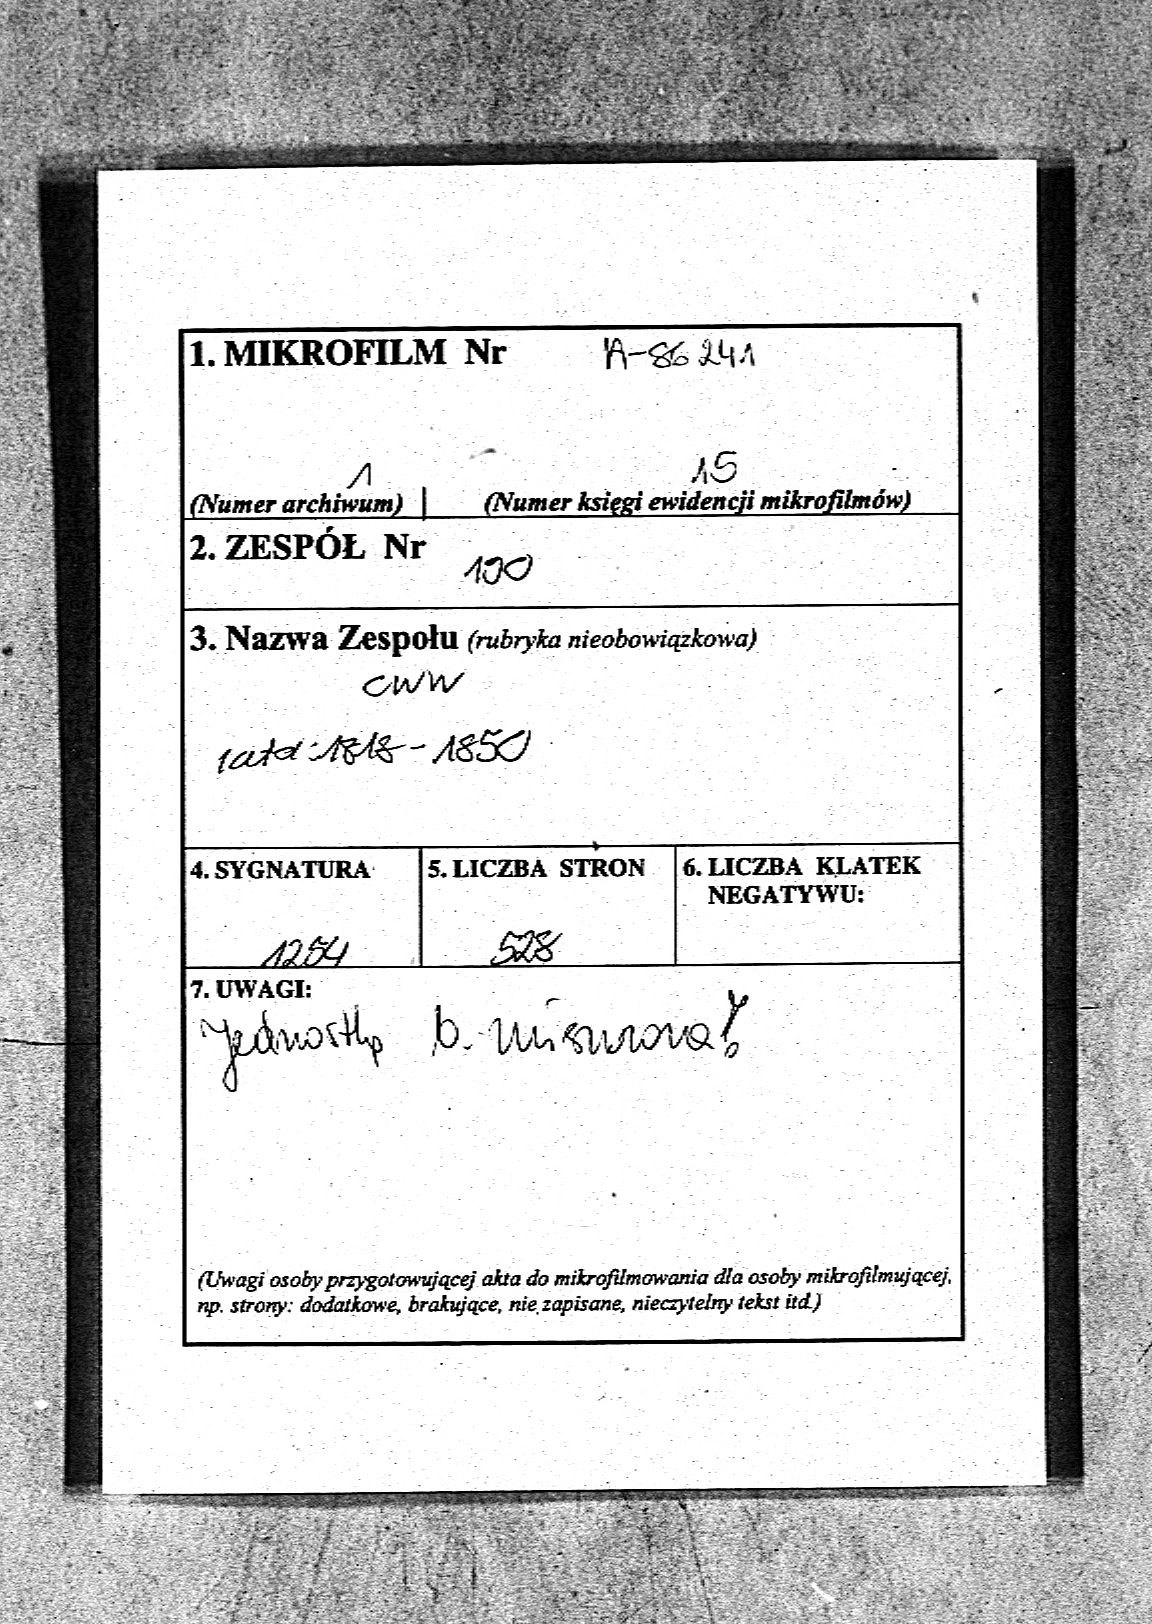 1. MIKROFILM Nr A-86241
1 15
(Numer archiwum) (Numer księgi ewidencji mikrofilmów)
2. ZESPÓŁ Nr 190
3. Nazwa Zespołu (rubryka nieobowiązkowa)
CWW
lata: 1818-1850
4. SYGNATURA 5. LICZBA STRON 6. LICZBA KLATEK
NEGATYWU:
1254 528
7. UWAGI:
Jednostka b.
(Uwagi osoby przygotowującej akta do mikrofilmowania dla osoby mikrofilmującej,
np. strony: dodatkowe, brakujące, nie zapisane, nieczytelny tekst itd.)